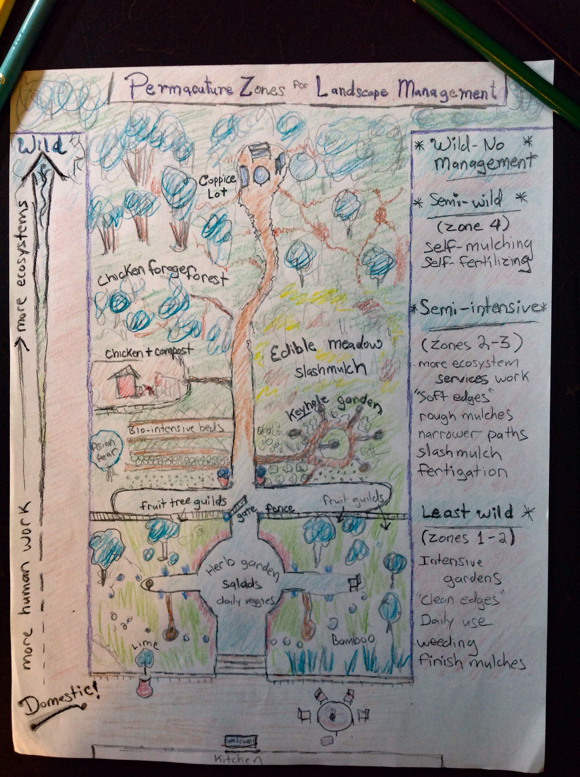 Permaculture Zones for Landscape Management
Wild
more ecosystems
more human work
Domestic!
Coppice
Lot
Chicken forage forest
Chicken + compost
Edible meadow
slashmulch
Keyhole garden
Bio-intensive beds
Asian
Pear
fruit tree guilds
gate
fence
fruit guilds
Herb garden
salads
daily veggies
Lime
Bamboo
welcome
Kitchen
* Wild-No *
management
* Semi-wild *
(zone 4)
self-mulching
self-fertilizing
* Semi-intensive *
(zones 2-3)
more ecosystem
services work
"soft edges"
rough mulches
narrower paths
slashmulch
fertigation
Least wild *
(zones 1-2)
Intensive
gardens
"clean edges"
Daily use
weeding
finish mulches